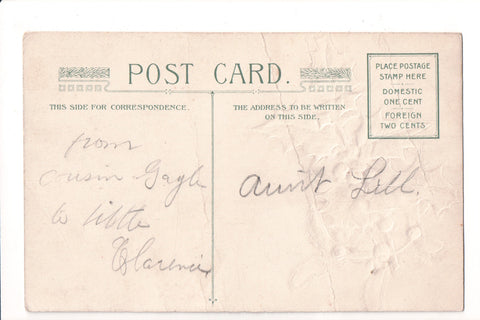 POST CARD.
THIS SIDE FOR CORRESPONDENCE.
THE ADDRESS TO BE WRITTEN
ON THIS SIDE.
PLACE POSTAGE
STAMP HERE
DOMESTIC
ONE CENT
FOREIGN
TWO CENTS
from
cousin Gayle
to little
Clarence
Aunt Lell.